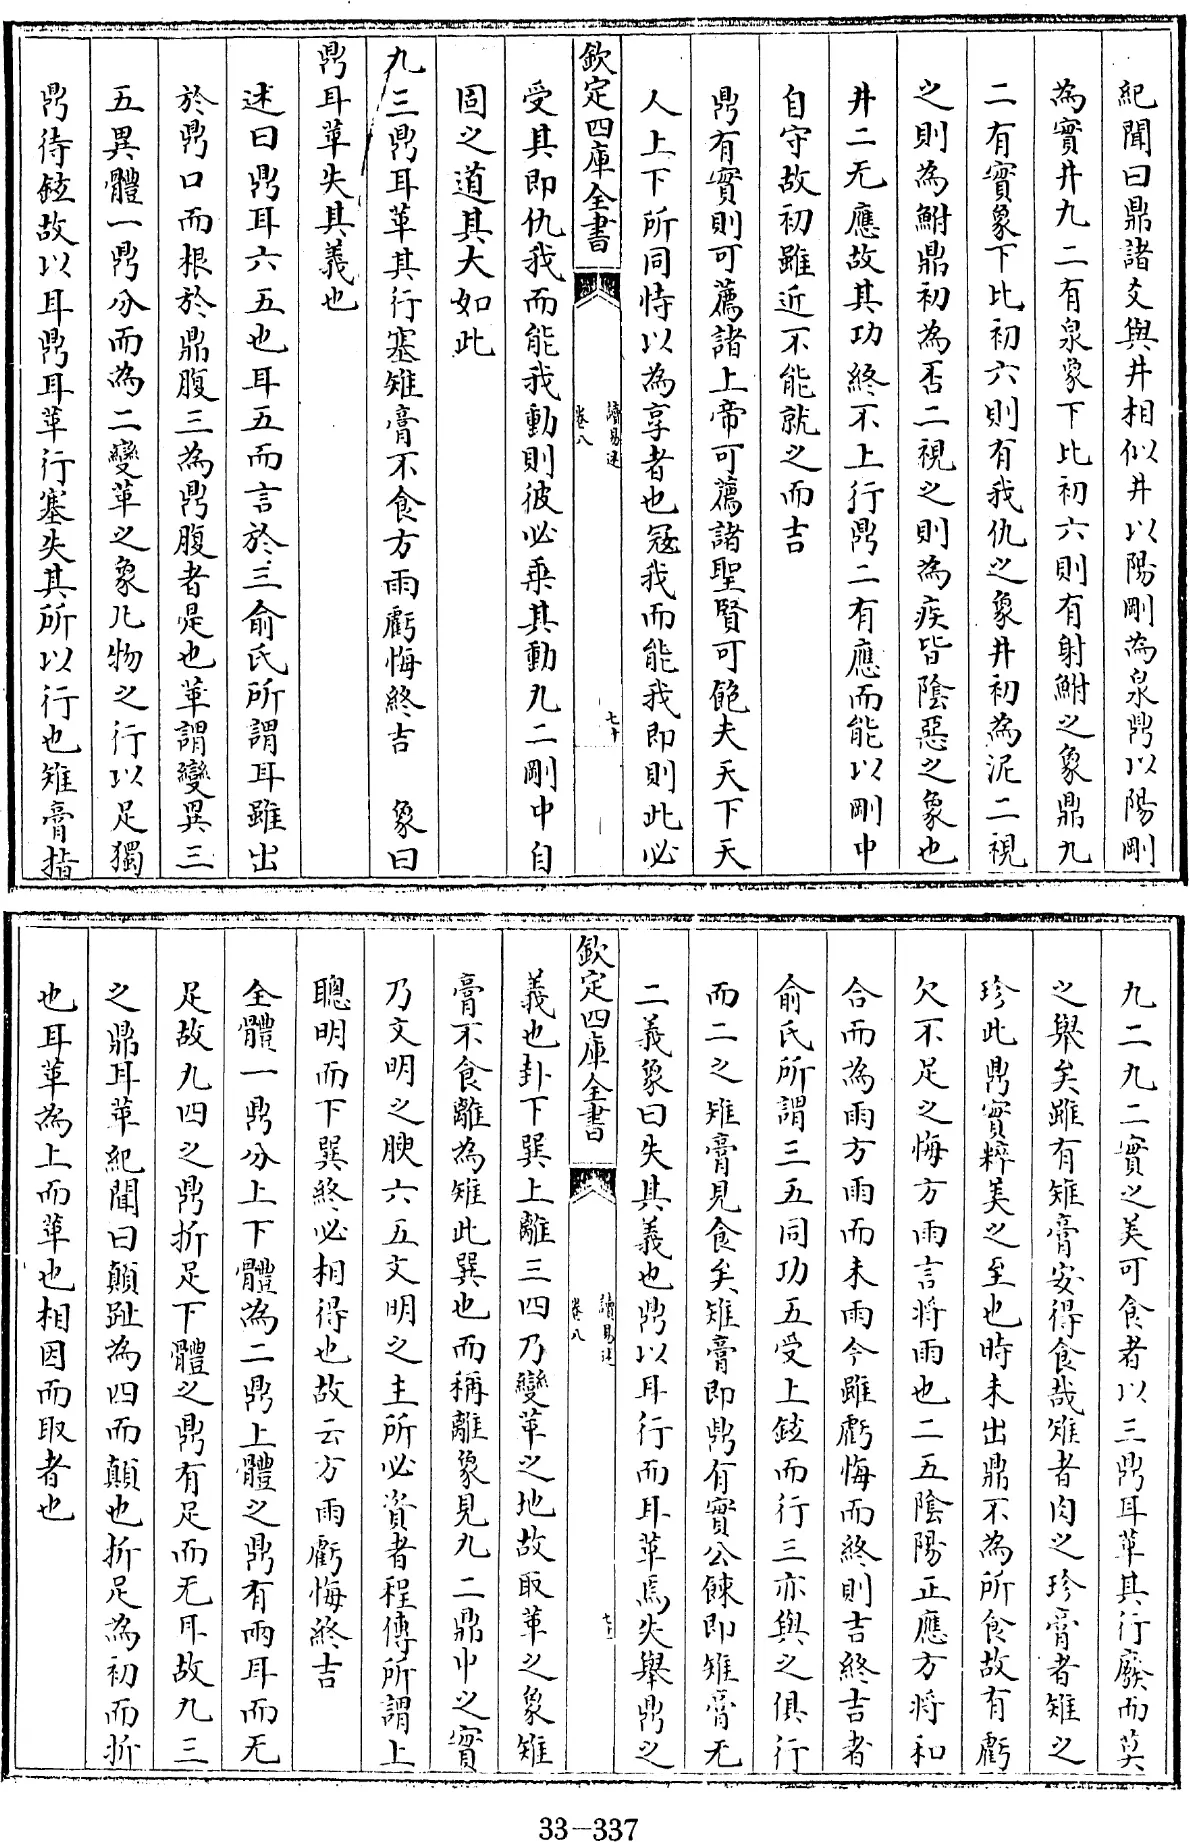 紀聞曰鼎諸爻與井相似井以陽剛為泉鼎以陽剛
為實井九二有泉象下比初六則有射鮒之象鼎九
二有實象下比初六則有我仇之象井初為泥二視
之則為鮒鼎初為否二視之則為疾皆陰惡之象也
井二无應故其功終不上行鼎二有應而能以剛中
自守故初雖近不能就之而吉
鼎有實則可薦諸上帝可薦諸聖賢可飽夫天下天
人上下所同恃以為享者也寇我而能我即則此必
欽定四庫全書
讀易述
卷八
七十
受其即仇我而能我動則彼必乘其動九二剛中自
固之道其大如此
九三鼎耳革其行塞雉膏不食方雨虧悔終吉 象曰
鼎耳革失其義也
述曰鼎耳六五也耳五而言於三俞氏所謂耳雖出
於鼎口而根於鼎腹三為鼎腹者是也革謂變異三
五異體一鼎分而為二變革之象凡物之行以足獨
鼎待鉉故以耳鼎耳革行塞失其所以行也雉膏指
九二九二實之美可食者以三鼎耳革其行廢而莫
之舉矣雖有雉膏安得食哉雉者肉之珍膏者雉之
珍此鼎實粹美之至也時未出鼎不為所食故有虧
欠不足之悔方雨言將雨也二五陰陽正應方將和
合而為雨方雨而未雨今雖虧悔而終則吉終吉者
俞氏所謂三五同功五受上鉉而行三亦與之俱行
而二之雉膏見食矣雉膏即鼎有實公餗即雉膏无
二義象曰失其義也鼎以耳行而耳革焉失舉鼎之
欽定四庫全書
讀易述
卷八
義也卦下巽上離三四乃變革之地故取革之象雉
膏不食離為雉此巽也而稱離象見九二鼎中之實
乃文明之腴六五文明之主所必資者程傳所謂上
聰明而下巽終必相得也故云方雨虧悔終吉
全體一鼎分上下體為二鼎上體之鼎有兩耳而无
足故九四之鼎折足下體之鼎有足而无耳故九三
之鼎耳革紀聞曰顛趾為四而顛也折足為初而折
也耳革為上而革也相因而取者也
33-337